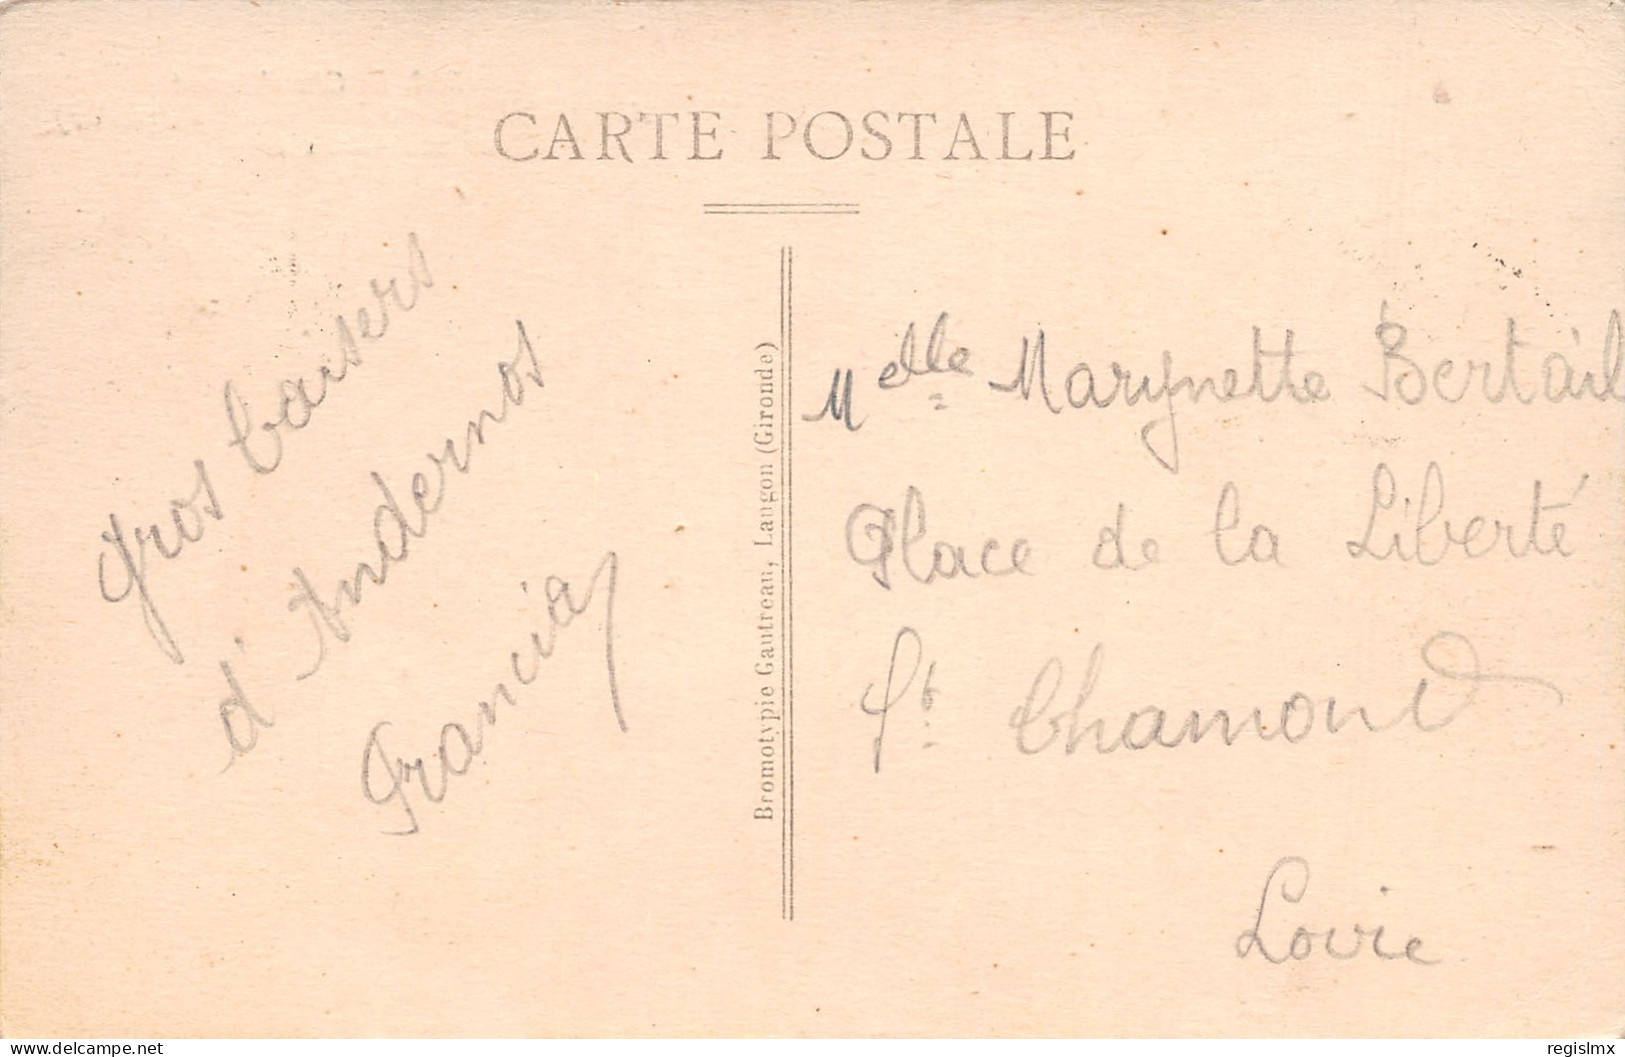 CARTE POSTALE
Gros baisers
d'Andernos
Francia
Bromotypie Gautreau, Langon (Gironde)
Melle Marynette Bertail
Place de la Liberté
St. Chamond
Loire
www.delcampe.net
regislmx